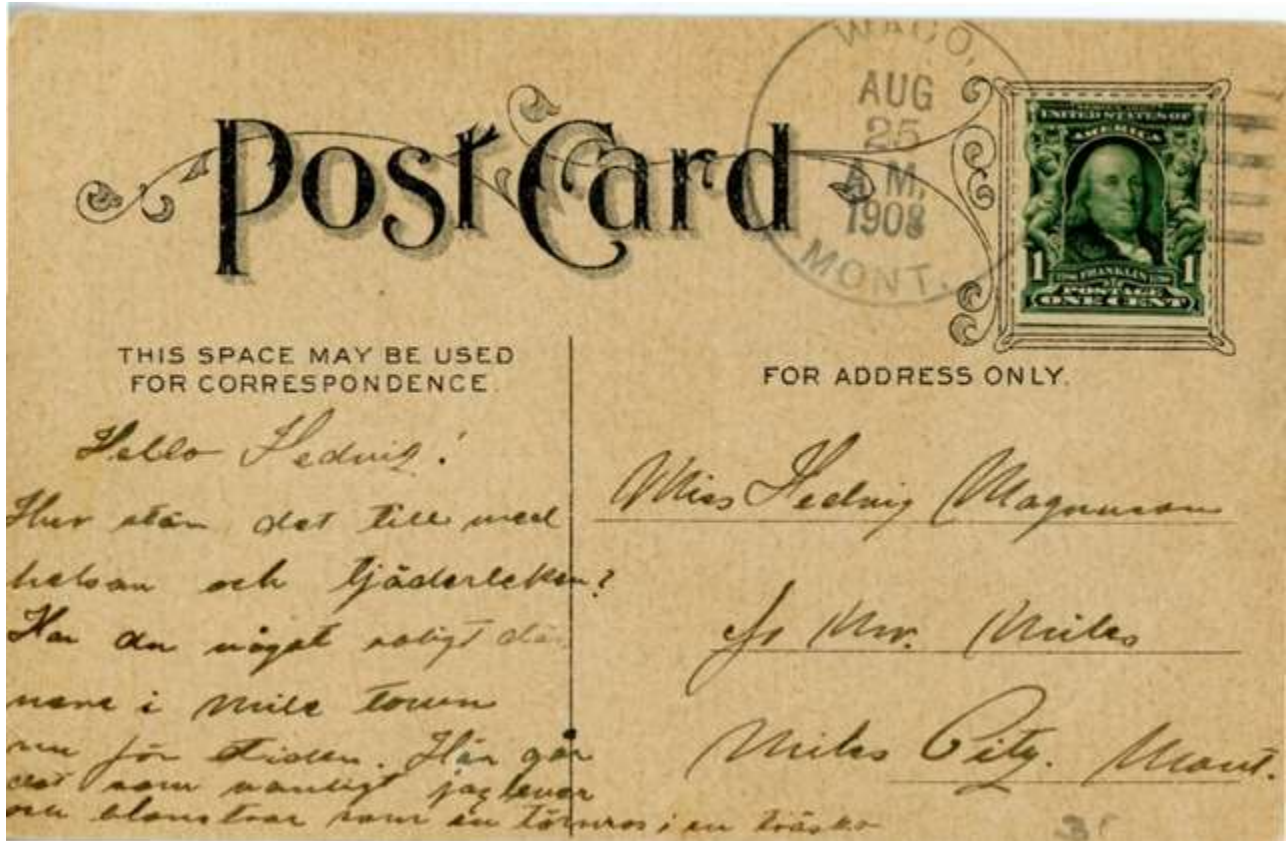 WACO,
AUG
25
A.M.
1908
MONT.
UNITED STATES OF
AMERICA
1 FRANKLIN 1
POSTAGE
ONE CENT
Post Card
THIS SPACE MAY BE USED
FOR CORRESPONDENCE.
Hello Hedvig!
Hur står det till med
helsan och tjäderleken?
Har du något roligt där
nere i Mile town
nu för tiden. Här går
det som vanligt jag lever
och blomstrar som en törnros i en träsko
FOR ADDRESS ONLY.
Miss Hedvig Magnuson
Mr. Miles
Miles City. Mont.